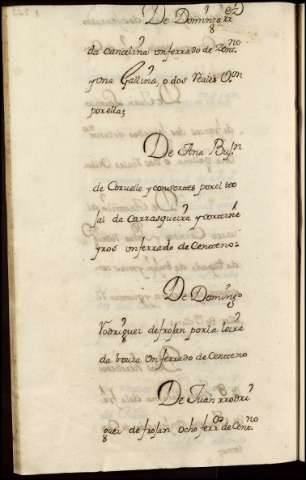 De Domingo
da cancelina un ferrado de Cen.no
y una Gallina, o dos Reales
por ellas
De Ana
de Coruelle y consortes por el
tal da Carrasqueira y
un ferrado de Centeno.
De Domingo
Rodriguez de frojan por la leira
da bouza un ferrado de Centeno
De Juan Rodri
guez de frojan ocho ferr.os de Cen.no